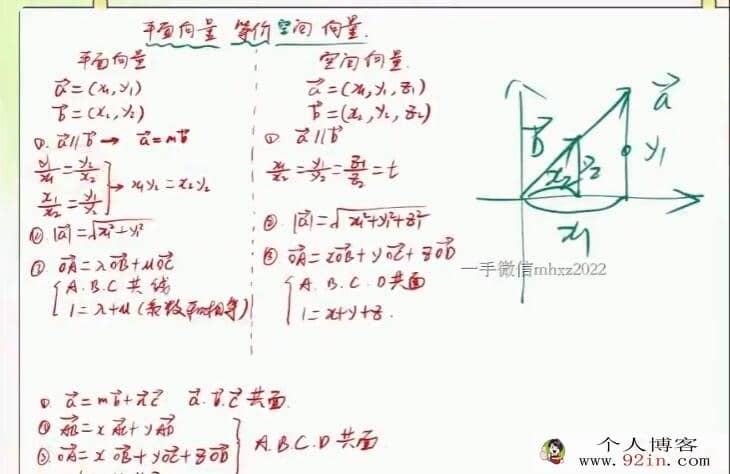 平面向量 等价 空间向量.
平面向量
a⃗=(x₁,y₁)
b⃗=(x₂,y₂)
①. a⃗∥b⃗ → a⃗=mb⃗
y₁/x₁=y₂/x₂
x₁/x₂=y₁/y₂
→ x₁y₂=x₂y₂
②. |a⃗|=√x₁²+y₁²
③. OA⃗=λOB⃗+μOC⃗
A.B.C共线
1=λ+μ(系数和相等)
空间向量.
a⃗=(x₁,y₁,z₁)
b⃗=(x₂,y₂,z₂)
①. a⃗∥b⃗
x₁/x₂=y₁/y₂=z₁/z₂=t
②. |a⃗|=√x₁²+y₁²+z₁²
③ OA⃗=xOB⃗+yOC⃗+zOD⃗
A.B.C.D共面
1=x+y+z.
a⃗
b⃗
y₁
y₂
x₂
x₁
一手微信mhxz2022
①. a⃗=mb⃗+nc⃗ a⃗.b⃗.c⃗共面.
② AB⃗=xAC⃗+yAD⃗
③. OA⃗=xOB⃗+yOC⃗+zOD⃗
A.B.C.D共面
个人博客
www.92in.com